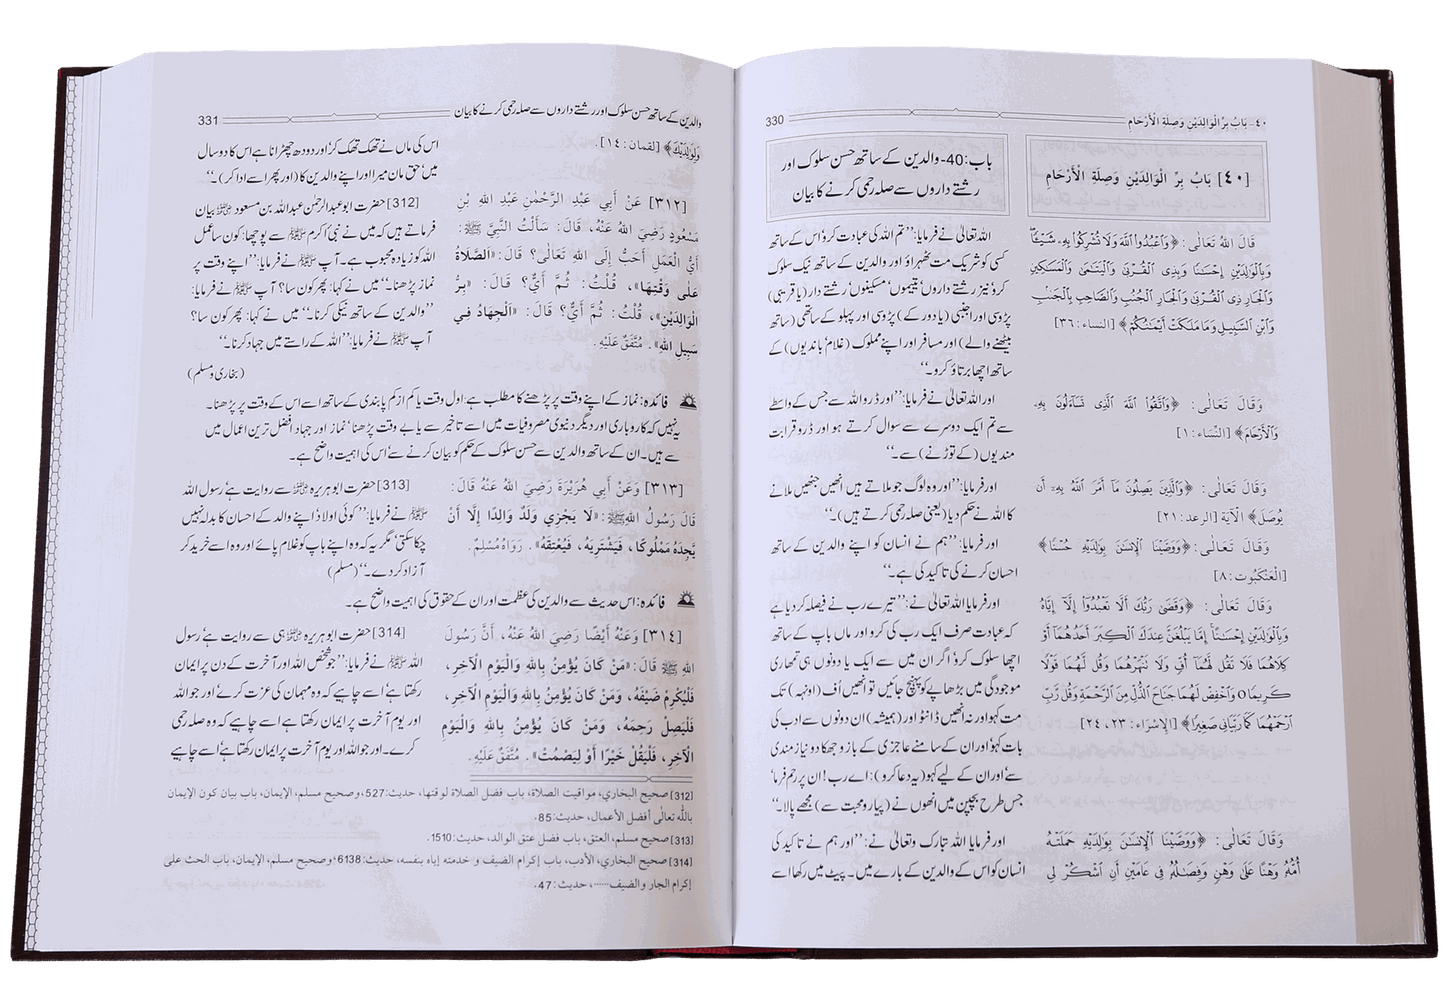 ٤٠- بَابُ بِرِّ الْوَالِدَيْنِ وَصِلَةِ الْأَرْحَامِ
330
[٤٠] بَابُ بِرِّ الْوَالِدَيْنِ وَصِلَةِ الْأَرْحَامِ
باب:40- والدین کے ساتھ حسن سلوک اور
رشتے داروں سے صلہ رحمی کرنے کا بیان
قَالَ اللهُ تَعَالَى: ﴿وَٱعْبُدُوا۟ ٱللَّهَ وَلَا تُشْرِكُوا۟ بِهِۦ شَيْـًٔا ۖ
وَبِٱلْوَٰلِدَيْنِ إِحْسَـٰنًا وَبِذِى ٱلْقُرْبَىٰ وَٱلْيَتَـٰمَىٰ وَٱلْمَسَـٰكِينِ
وَٱلْجَارِ ذِى ٱلْقُرْبَىٰ وَٱلْجَارِ ٱلْجُنُبِ وَٱلصَّاحِبِ بِٱلْجَنۢبِ
وَٱبْنِ ٱلسَّبِيلِ وَمَا مَلَكَتْ أَيْمَـٰنُكُمْ﴾ [النساء:٣٦]
اللہ تعالیٰ نے فرمایا: ’’تم اللہ کی عبادت کرو‘ اس کے ساتھ
کسی کو شریک مت ٹھہراؤ اور والدین کے ساتھ نیک سلوک
کرو‘ نیز رشتے داروں‘ یتیموں‘ مسکینوں‘ رشتے دار (یا قریبی)
پڑوسی اور اجنبی (یا دور کے) پڑوسی اور پہلو کے ساتھی (ساتھ
بیٹھنے والے) اور مسافر اور اپنے مملوک (غلام‘ باندیوں) کے
ساتھ اچھا برتاؤ کرو۔‘‘
وَقَالَ تَعَالَى: ﴿وَٱتَّقُوا۟ ٱللَّهَ ٱلَّذِى تَسَآءَلُونَ بِهِۦ
وَٱلْأَرْحَامَ﴾ [النِّسَاء:١]
اور اللہ تعالیٰ نے فرمایا: ’’اور ڈرو اللہ سے جس کے واسطے
سے تم ایک دوسرے سے سوال کرتے ہو اور ڈرو قرابت
مندیوں (کے توڑنے) سے۔‘‘
وَقَالَ تَعَالَى: ﴿وَٱلَّذِينَ يَصِلُونَ مَآ أَمَرَ ٱللَّهُ بِهِۦٓ أَن
يُوصَلَ﴾ الْآيَةَ [الرعد:٢١]
اور فرمایا: ’’اور وہ لوگ جو ملاتے ہیں انھیں جنھیں ملانے
کا اللہ نے حکم دیا (یعنی صلہ رحمی کرتے ہیں)۔‘‘
وَقَالَ تَعَالَى: ﴿وَوَصَّيْنَا ٱلْإِنسَـٰنَ بِوَٰلِدَيْهِ حُسْنًا﴾
[الْعَنْكَبُوت:٨]
اور فرمایا: ’’ہم نے انسان کو اپنے والدین کے ساتھ
احسان کرنے کی تاکید کی ہے۔‘‘
وَقَالَ تَعَالَى: ﴿وَقَضَىٰ رَبُّكَ أَلَّا تَعْبُدُوٓا۟ إِلَّآ إِيَّاهُ
وَبِٱلْوَٰلِدَيْنِ إِحْسَـٰنًا ۚ إِمَّا يَبْلُغَنَّ عِندَكَ ٱلْكِبَرَ أَحَدُهُمَآ أَوْ
كِلَاهُمَا فَلَا تَقُل لَّهُمَآ أُفٍّ وَلَا تَنْهَرْهُمَا وَقُل لَّهُمَا قَوْلًا
كَرِيمًا ۝ وَٱخْفِضْ لَهُمَا جَنَاحَ ٱلذُّلِّ مِنَ ٱلرَّحْمَةِ وَقُل رَّبِّ
ٱرْحَمْهُمَا كَمَا رَبَّيَانِى صَغِيرًا﴾ [الإِسْرَاء:٢٣، ٢٤]
اور فرمایا اللہ تعالیٰ نے: ’’تیرے رب نے فیصلہ کر دیا ہے
کہ عبادت صرف ایک رب کی کرو اور ماں باپ کے ساتھ
اچھا سلوک کرو‘ اگر ان میں سے ایک یا دونوں ہی تمھاری
موجودگی میں بڑھاپے کو پہنچ جائیں تو انھیں اُف (اونہہ) تک
مت کہو اور نہ انھیں ڈانٹو اور (ہمیشہ) ان دونوں سے ادب کی
بات کہو‘ اور ان کے سامنے عاجزی کے بازو جھکا دو نیازمندی
سے‘ اور ان کے لیے کہو (یہ دعا کرو): اے رب! ان پر رحم فرما‘
جس طرح بچپن میں انھوں نے (پیار و محبت سے) مجھے پالا۔‘‘
وَقَالَ تَعَالَى: ﴿وَوَصَّيْنَا ٱلْإِنسَـٰنَ بِوَٰلِدَيْهِ حَمَلَتْهُ
أُمُّهُۥ وَهْنًا عَلَىٰ وَهْنٍ وَفِصَـٰلُهُۥ فِى عَامَيْنِ أَنِ ٱشْكُرْ لِى
اور فرمایا اللہ تبارک وتعالیٰ نے: ’’اور ہم نے تاکید کی
انسان کو اس کے والدین کے بارے میں۔ پیٹ میں رکھا اسے
والدین کے ساتھ حسن سلوک اور رشتے داروں سے صلہ رحمی کرنے کا بیان
331
وَلِوَٰلِدَيْكَ﴾ [لقمان:١٤].
اس کی ماں نے تھک تھک کر‘ اور دودھ چھڑانا ہے اس کا دو سال
میں‘ حق مان میرا اور اپنے والدین کا (اور پھر اسے ادا کر)۔‘‘
[٣١٢] عَنْ أَبِي عَبْدِ الرَّحْمٰنِ عَبْدِ اللهِ بْنِ
مَسْعُودٍ رَضِيَ اللهُ عَنْهُ، قَالَ: سَأَلْتُ النَّبِيَّ ﷺ:
أَيُّ الْعَمَلِ أَحَبُّ إِلَى اللهِ تَعَالَى؟ قَالَ: «الصَّلَاةُ
عَلَى وَقْتِهَا»، قُلْتُ: ثُمَّ أَيٌّ؟ قَالَ: «بِرُّ
الْوَالِدَيْنِ»، قُلْتُ: ثُمَّ أَيٌّ؟ قَالَ: «الْجِهَادُ فِي
سَبِيلِ اللهِ». مُتَّفَقٌ عَلَيْهِ.
[312] حضرت ابو عبدالرحمٰن عبداللہ بن مسعود ﷜ بیان
فرماتے ہیں کہ میں نے نبی ٔ اکرم ﷺ سے پوچھا: کون سا عمل
اللہ کو زیادہ محبوب ہے۔ آپ ﷺ نے فرمایا: ’’اپنے وقت پر
نماز پڑھنا۔‘‘ میں نے کہا: پھر کون سا؟ آپ ﷺ نے فرمایا:
’’والدین کے ساتھ نیکی کرنا۔‘‘ میں نے کہا: پھر کون سا؟
آپ ﷺ نے فرمایا: ’’اللہ کے راستے میں جہاد کرنا۔‘‘
(بخاری و مسلم)
فائدہ: نماز کے اپنے وقت پر پڑھنے کا مطلب ہے: اول وقت یا کم از کم پابندی کے ساتھ اسے اس کے وقت پر پڑھنا۔
یہ نہیں کہ کاروباری اور دیگر دنیوی مصروفیات میں اسے تاخیر سے یا بے وقت پڑھنا‘ نماز اور جہاد افضل ترین اعمال میں
سے ہیں۔ ان کے ساتھ والدین سے حسن سلوک کے حکم کو بیان کرنے سے‘ اس کی اہمیت واضح ہے۔
[٣١٣] وَعَنْ أَبِي هُرَيْرَةَ رَضِيَ اللهُ عَنْهُ قَالَ:
قَالَ رَسُولُ اللهِ ﷺ: «لَا يَجْزِي وَلَدٌ وَالِدًا إِلَّا أَنْ
يَّجِدَهُ مَمْلُوكًا، فَيَشْتَرِيَهُ، فَيُعْتِقَهُ». رَوَاهُ مُسْلِمٌ.
[313] حضرت ابو ہریرہ ﷜ سے روایت ہے‘ رسول اللہ
ﷺ نے فرمایا: ’’کوئی اولاد اپنے والد کے احسان کا بدلہ نہیں
چکا سکتی‘ مگر یہ کہ وہ اپنے باپ کو غلام پائے اور وہ اسے خرید کر
آزاد کر دے۔‘‘ (مسلم)
فائدہ: اس حدیث سے والدین کی عظمت اور ان کے حقوق کی اہمیت واضح ہے۔
[٣١٤] وَعَنْهُ أَيْضًا رَضِيَ اللهُ عَنْهُ، أَنَّ رَسُولَ
اللهِ ﷺ قَالَ: «مَنْ كَانَ يُؤْمِنُ بِاللهِ وَالْيَوْمِ الْآخِرِ،
فَلْيُكْرِمْ ضَيْفَهُ، وَمَنْ كَانَ يُؤْمِنُ بِاللهِ وَالْيَوْمِ الْآخِرِ،
فَلْيَصِلْ رَحِمَهُ، وَمَنْ كَانَ يُؤْمِنُ بِاللهِ وَالْيَوْمِ
الْآخِرِ، فَلْيَقُلْ خَيْرًا أَوْ لِيَصْمُتْ». مُتَّفَقٌ عَلَيْهِ.
[314] حضرت ابو ہریرہ ﷜ ہی سے روایت ہے‘ رسول
اللہ ﷺ نے فرمایا: ’’جو شخص اللہ اور آخرت کے دن پر ایمان
رکھتا ہے‘ اسے چاہیے کہ وہ مہمان کی عزت کرے‘ اور جو اللہ
اور یوم آخرت پر ایمان رکھتا ہے اسے چاہیے کہ وہ صلہ رحمی
کرے۔ اور جو اللہ اور یوم آخرت پر ایمان رکھتا ہے‘ اسے چاہیے
[312] صحيح البخاري، مواقيت الصلاة، باب فضل الصلاة لوقتها، حديث:527، وصحيح مسلم، الإيمان، باب بيان كون الإيمان
بالله تعالى أفضل الأعمال، حديث:85.
[313] صحيح مسلم، العتق، باب فضل عتق الوالد، حديث:1510.
[314] صحيح البخاري، الأدب، باب إكرام الضيف و خدمته إياه بنفسه، حديث:6138، وصحيح مسلم، الإيمان، باب الحث على
إكرام الجار والضيف......، حديث:47.